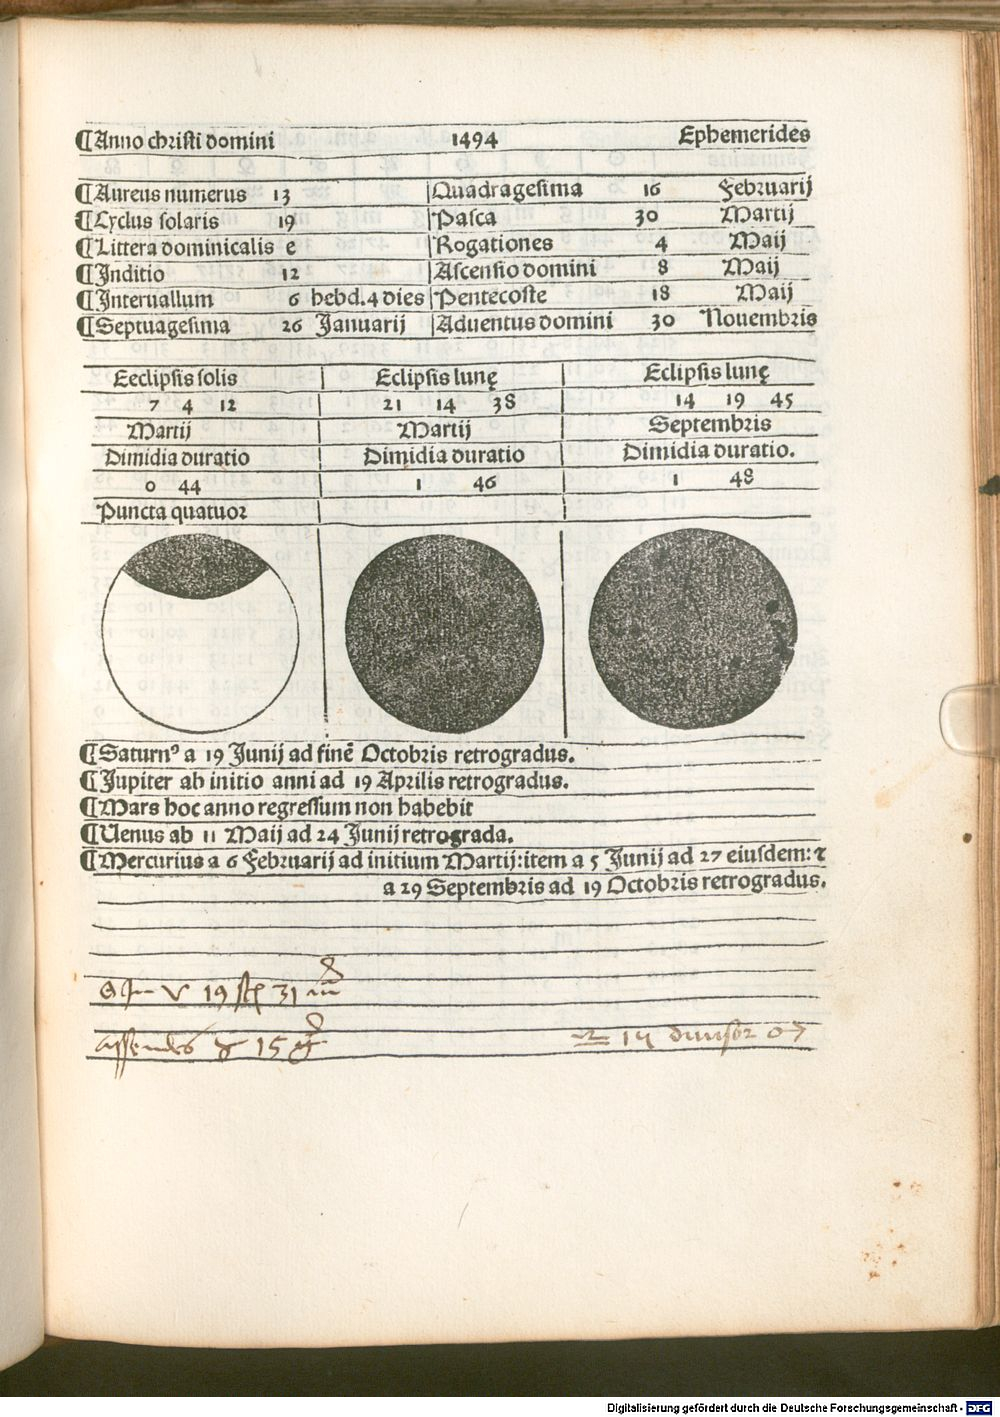 ¶Anno christi domini 1494 Ephemerides
¶Aureus numerus 13 Quadragesima 16 Februarij
¶Cyclus solaris 19 Pasca 30 Martij
¶Littera dominicalis e Rogationes 4 Maij
¶Inditio 12 Ascensio domini 8 Maij
¶Interuallum 6 hebd. 4 dies Pentecoste 18 Maij
¶Septuagesima 26 Januarij Aduentus domini 30 Nouembris
Eeclipsis solis Eclipsis lunę Eclipsis lunę
7 4 12 21 14 38 14 19 45
Martij Martij Septembris
Dimidia duratio Dimidia duratio Dimidia duratio.
0 44 1 46 1 48
Puncta quatuor
¶Saturnꝰ a 19 Junij ad finē Octobris retrogradus.
¶Jupiter ab initio anni ad 19 Aprilis retrogradus.
¶Mars hoc anno regressum non habebit
¶Uenus ab 11 Maij ad 24 Junij retrograda.
¶Mercurius a 6 Februarij ad initium Martij: item a 5 Junij ad 27 eiusdem: ⁊
a 29 Septembris ad 19 Octobris retrogradus.
19 31
15
Digitalisierung gefördert durch die Deutsche Forschungsgemeinschaft - DFG